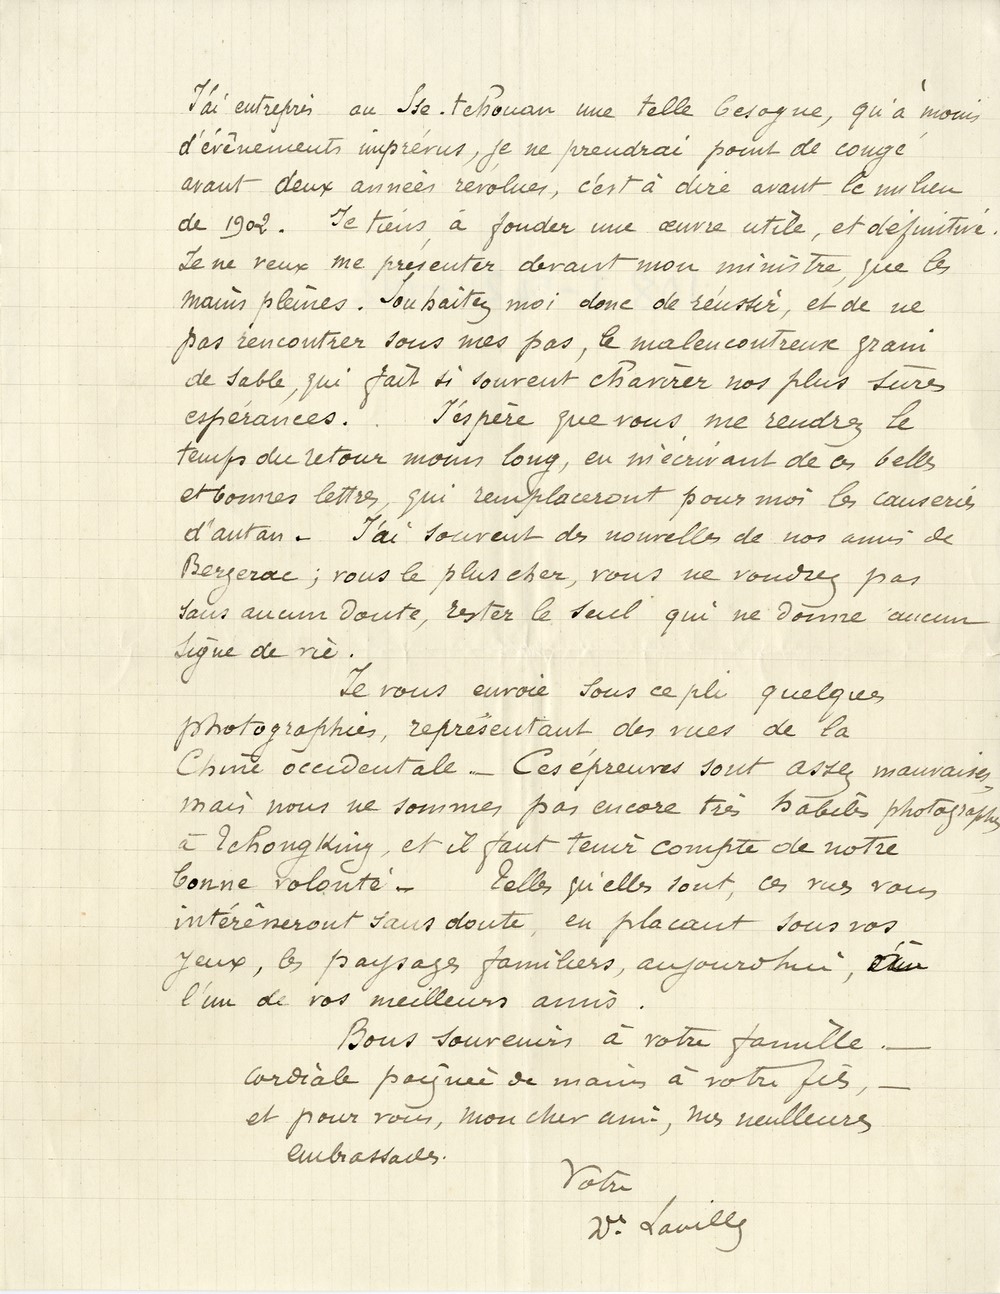 J'ai entrepris au Sse-tchouan une telle besogne, qu'à moins
d'évènements imprévus, je ne prendrai point de congé
avant deux années révolues, c'est à dire avant le milieu
de 1902. Je tiens à fonder une œuvre utile, et définitive.
Je ne veux me présenter devant mon ministre, que les
mains pleines. Souhaitez moi donc de réussir, et de ne
pas rencontrer sous mes pas, le malencontreux grain
de sable, qui fait si souvent chavirer nos plus sûres
espérances. J'espère que vous me rendrez le
temps du retour moins long, en m'écrivant de ces belles
et bonnes lettres, qui remplaceront pour moi les causeries
d'autan - J'ai souvent des nouvelles de nos amis de
Bergerac ; vous le plus cher, vous ne voudrez pas
sans aucun doute, rester le seul qui ne donne aucun
signe de vie.
Je vous envoie sous ce pli quelques
photographies, représentant des vues de la
Chine occidentale - Ces épreuves sont assez mauvaises,
mais nous ne sommes pas encore très habiles photographes
à Tchongking, et il faut tenir compte de notre
bonne volonté - Telles qu'elles sont, ces vues vous
intéresseront sans doute, en placant sous vos
yeux, les paysages familiers, aujourd'hui, à
l'un de vos meilleurs amis.
Bons souvenirs à votre famille. -
cordiale poignée de mains à votre fils, -
et pour vous, mon cher ami, mes meilleures
embrassades.
Votre
Dr